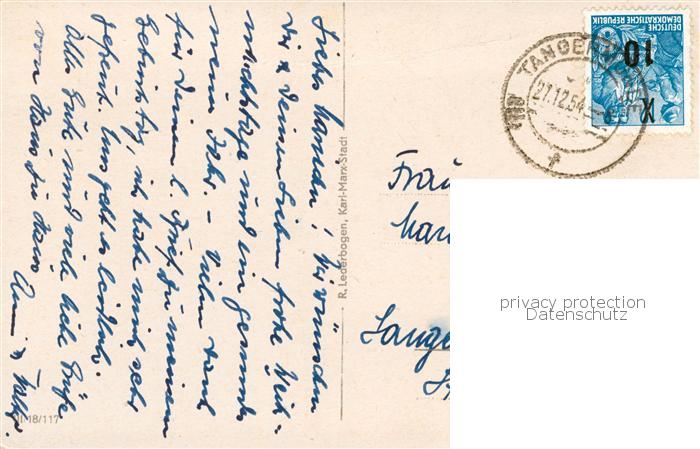 Liebes Mariechen! Wir wünschen
Dir & Deinen Lieben frohe Weih-
nachtstage und ein gesundes
neues Jahr. – Vielen Dank
für Deinen l. Brief zu meinem
Geburtstag, ich habe mich sehr
gefreut. Uns geht es leidlich.
Alles Gute und viele liebe Grüße
von Haus zu Haus
R. Lederbogen, Karl-Marx-Stadt
18/117
DEUTSCHE
DEMOKRATISCHE REPUBLIK
10
TANGER
21.12.54
Frau
privacy protection
Datenschutz